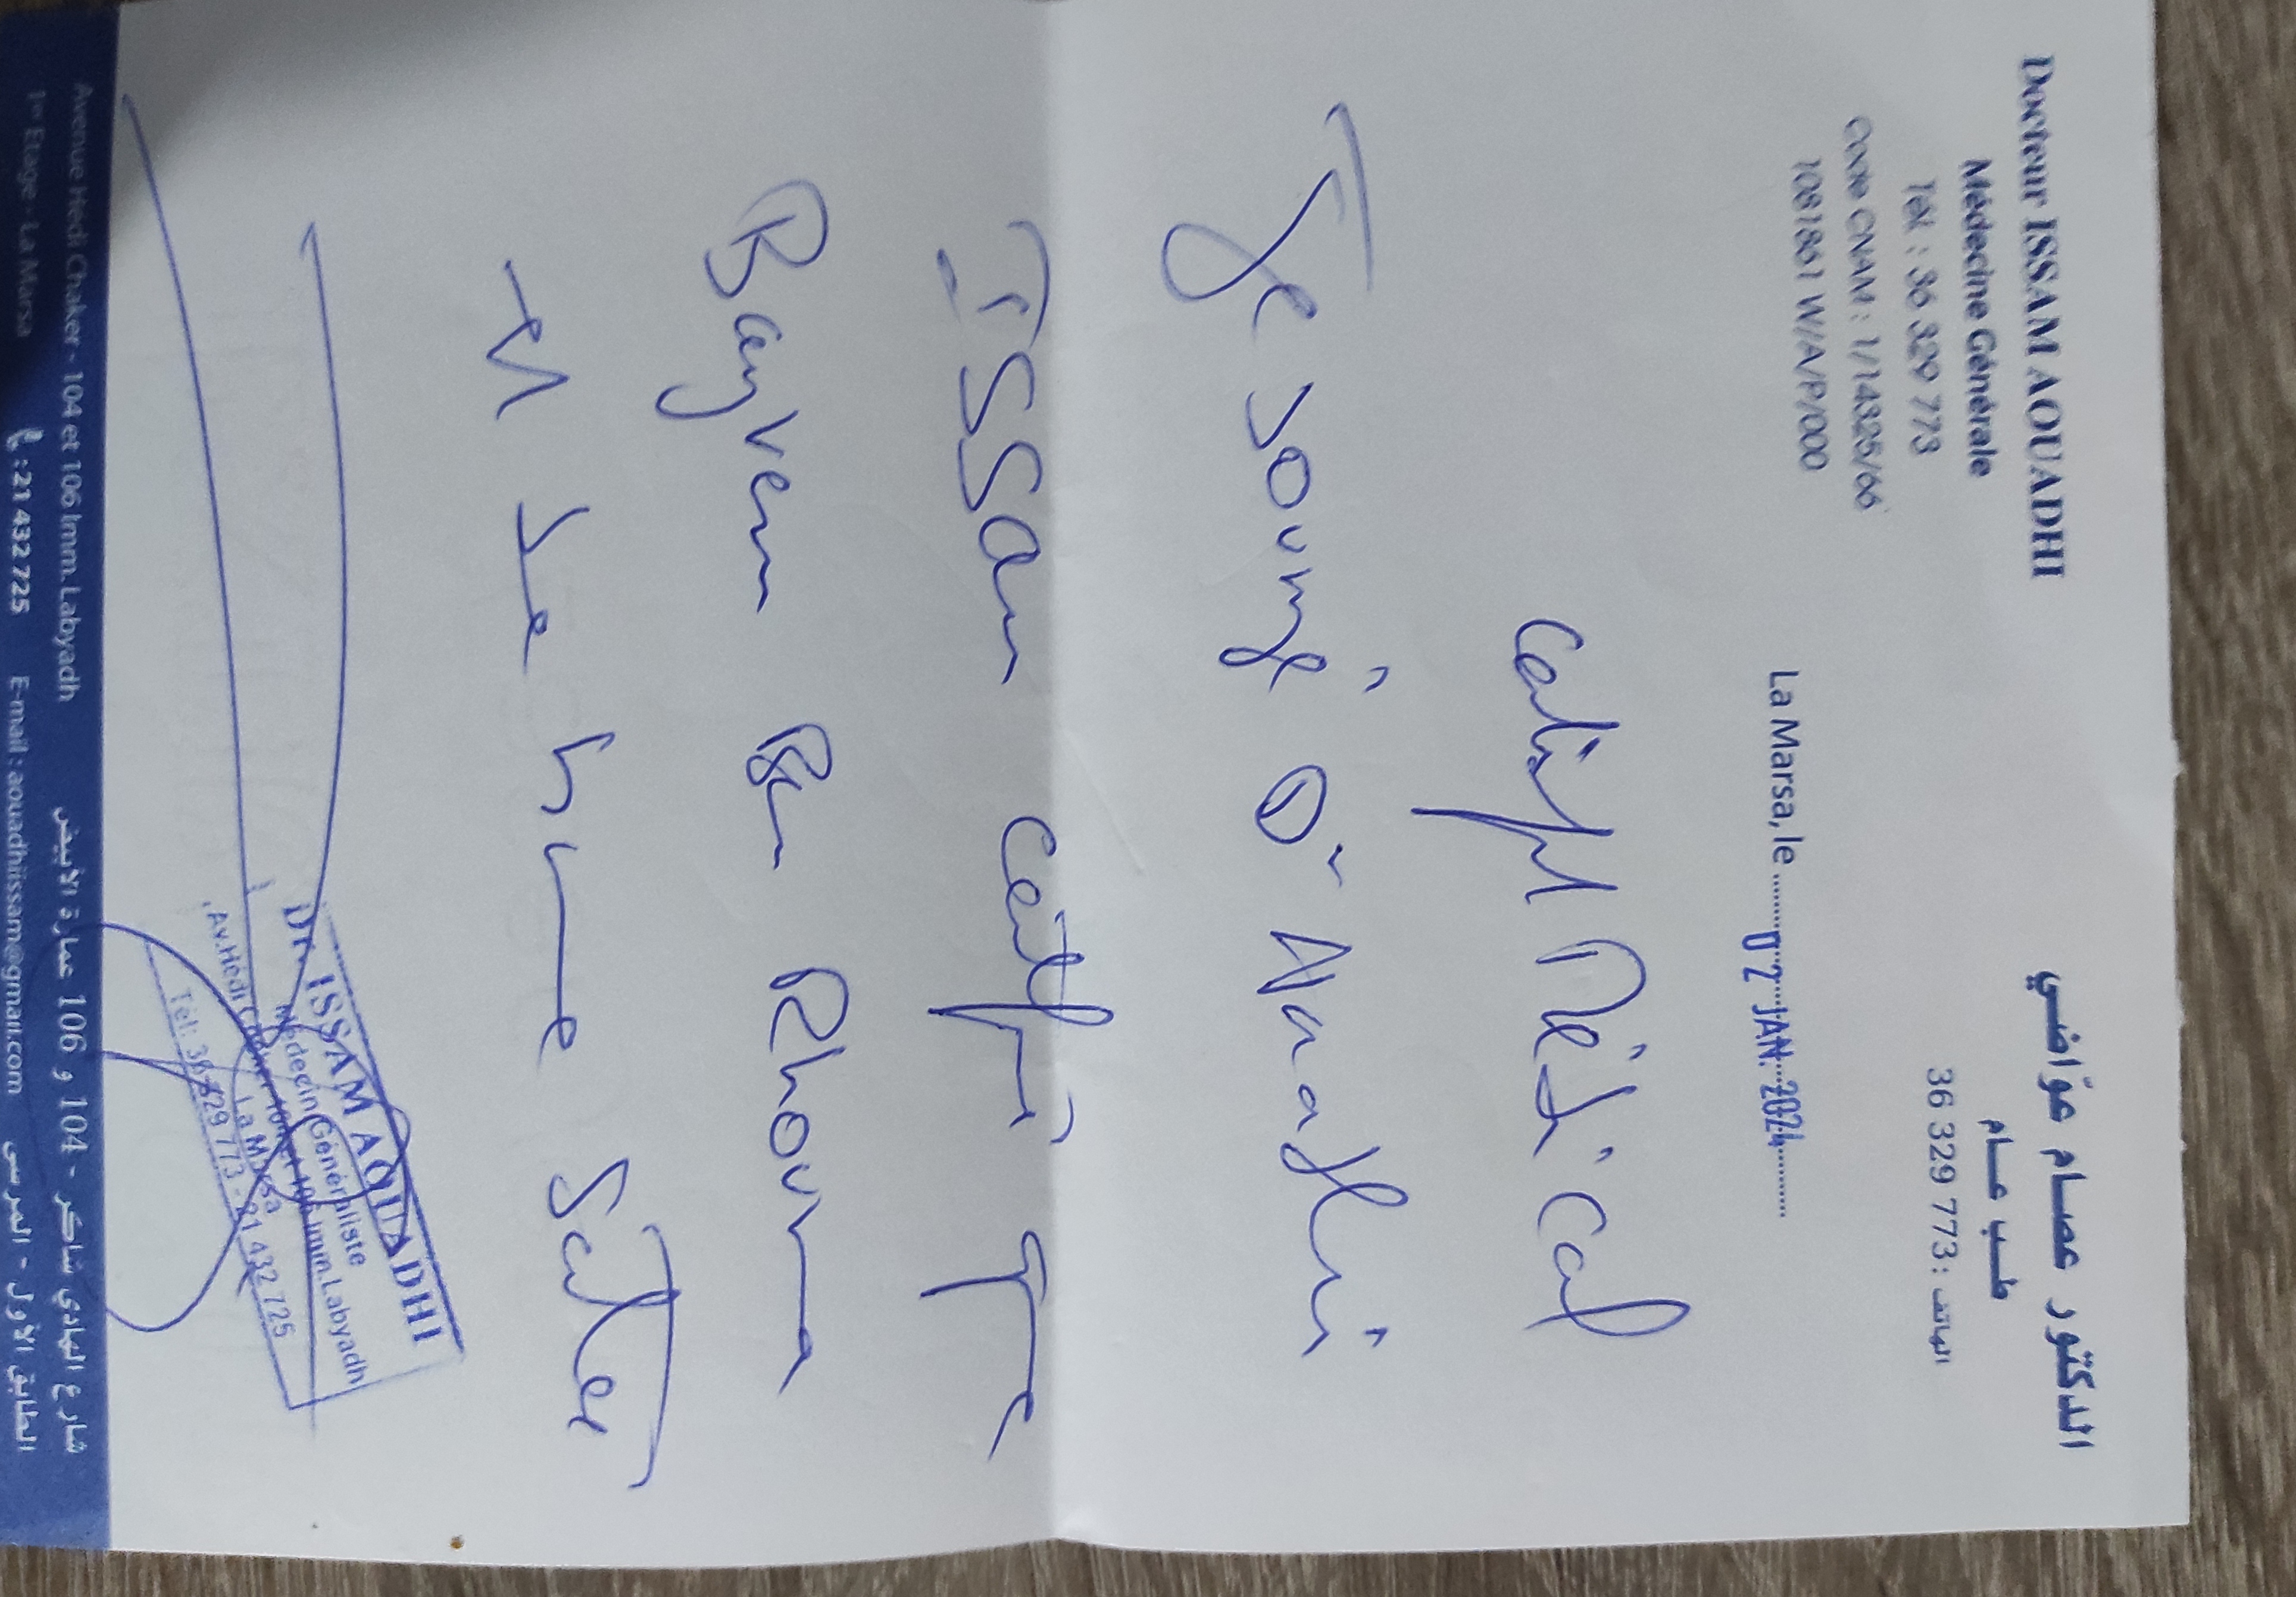 Docteur ISSAM AOUADHI
Médecine Générale
Tél. : 36 329 773
Code CNAM : 1/14325/66
1081861 W/A/P/000
الدكتور عصام عوّاضي
طب عام
الهاتف : 36 329 773
La Marsa, le 02 JAN. 2024
Certificat Médical
Je sousigné Dr Aouadhi
ISSam certifie que
Bayrem Ben Rhouma
est de bonne Santé
Dr. ISSAM AOUADHI
Médecin Généraliste
Av.Hédi Chaker 104 et 106 Imm.Labyadh
La Marsa
Tél: 36 329 773 - 21 432 725
Avenue Hédi Chaker - 104 et 106 Imm. Labyadh
1er Etage - La Marsa
شارع الهادي شاكر - 104 و 106 عمارة الأبيض
الطابق الأول - المرسى
: 21 432 725 E-mail : aouadhiissam@gmail.com